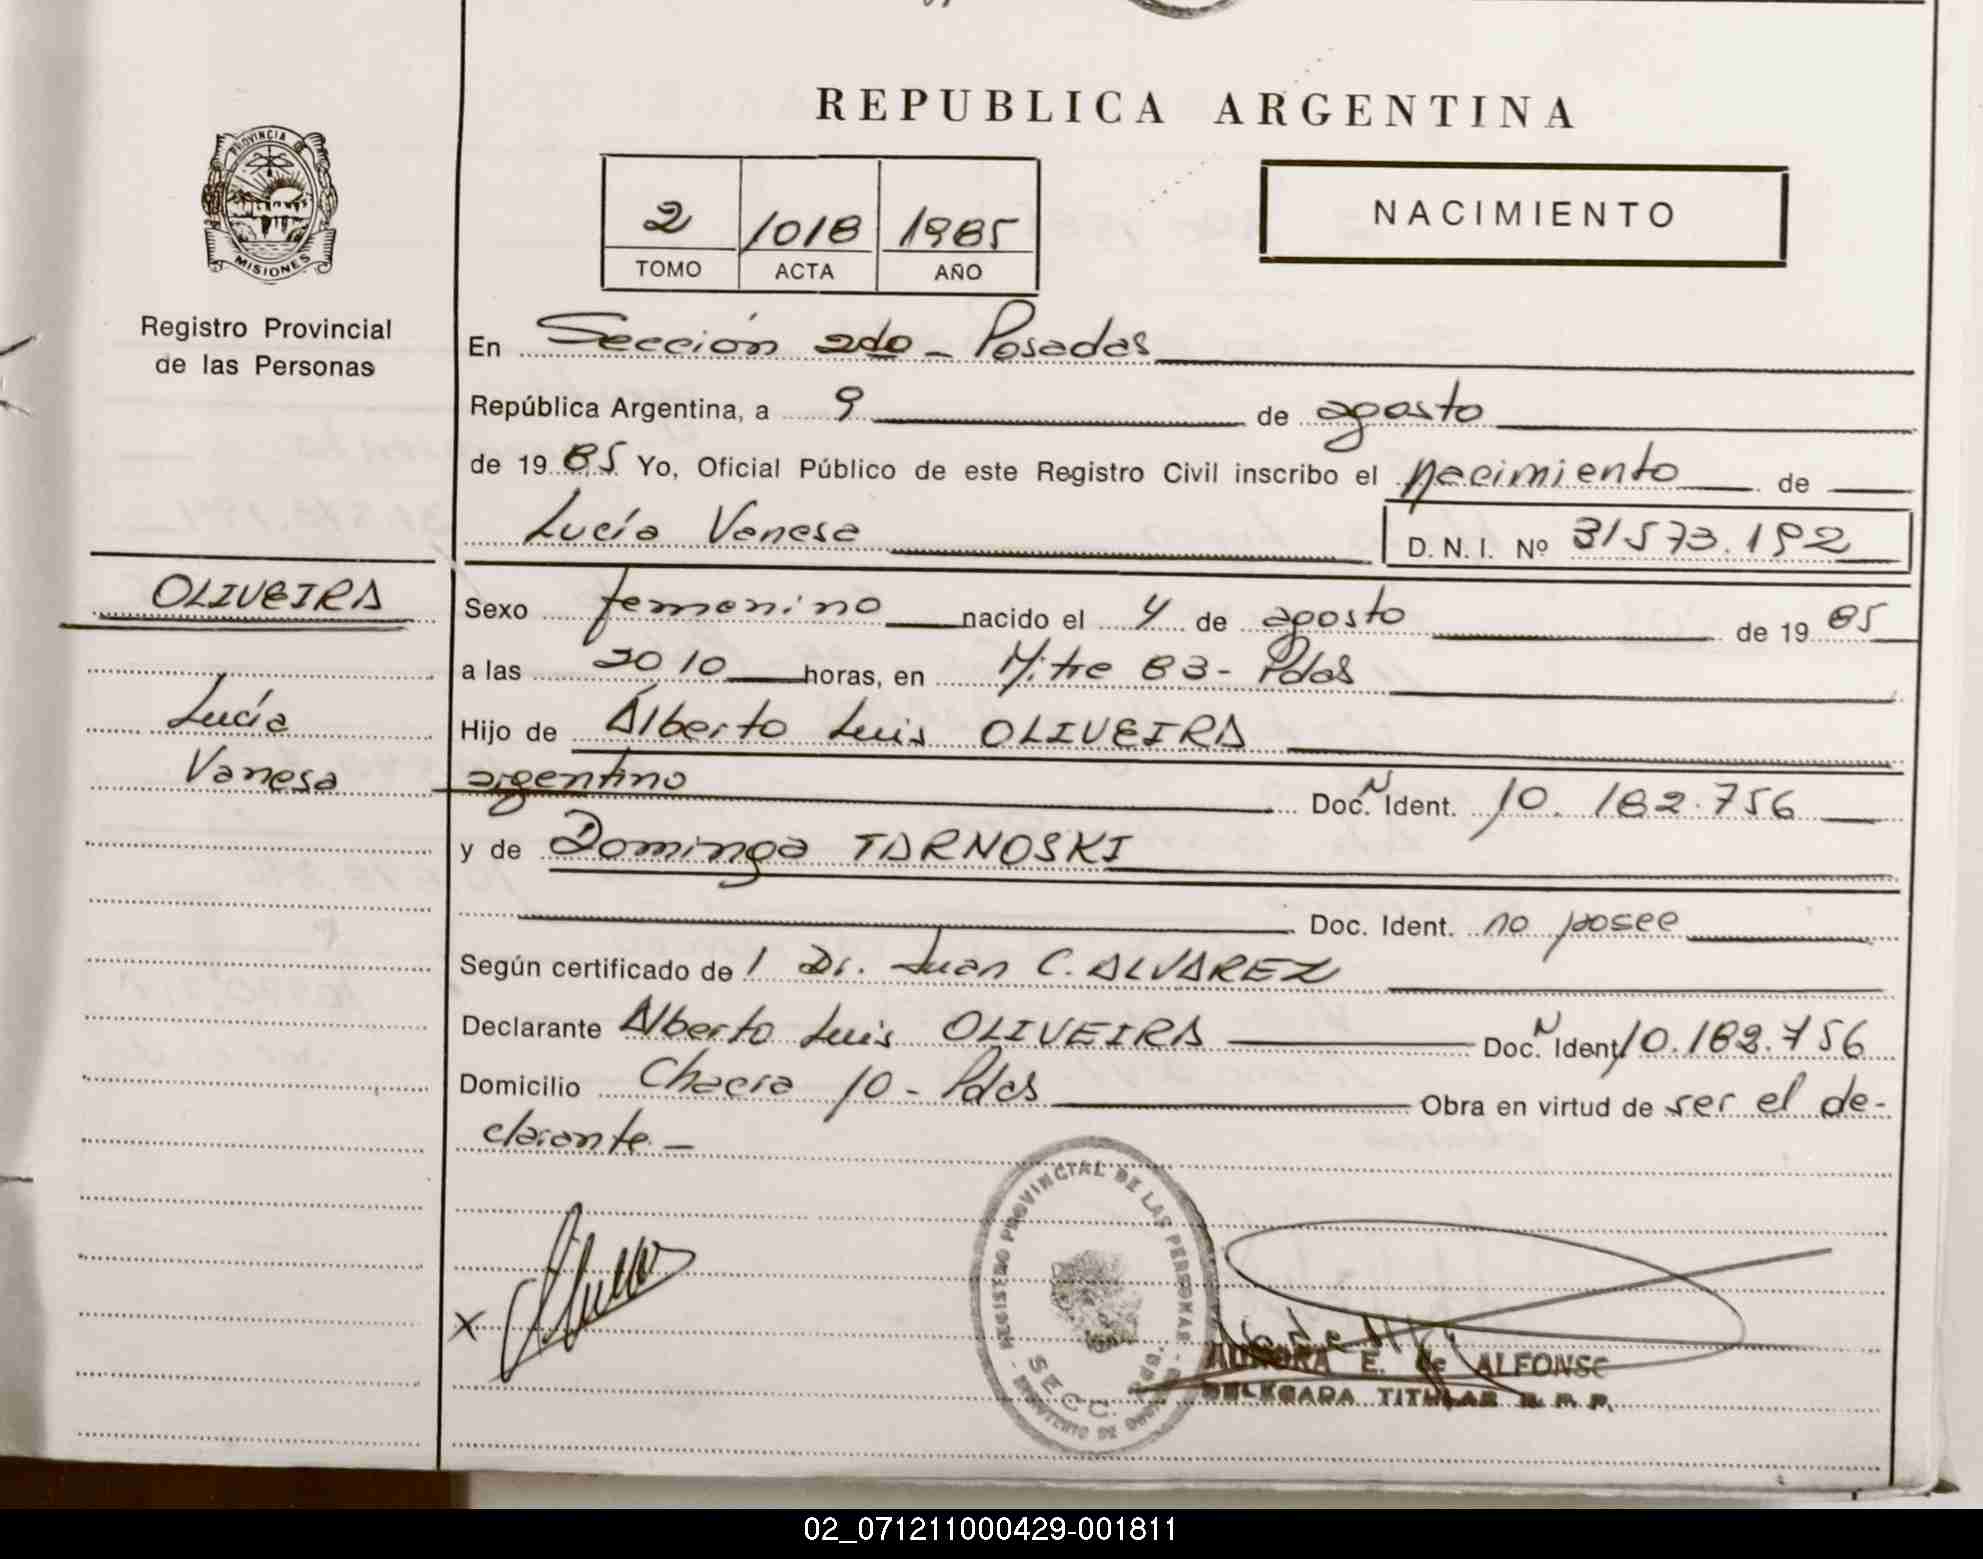 REPUBLICA ARGENTINA
PROVINCIA DE
MISIONES
Registro Provincial
de las Personas
2 1018 1985
TOMO ACTA AÑO
NACIMIENTO
En Sección 2do - Posadas
República Argentina, a 9 de agosto
de 19 85 Yo, Oficial Público de este Registro Civil inscribo el nacimiento de
Lucía Vanesa D. N. I. Nº 31573.192
OLIVEIRA
Lucía
Vanesa
Sexo femenino nacido el 4 de agosto de 19 85
a las 20 10 horas, en Mitre 83 - Pdas
Hijo de Alberto Luis OLIVEIRA
argentino Doc. N Ident. 10.182.756
y de Dominga TARNOSKI
Doc. Ident. no posee
Según certificado de / Dr. Juan C. ALVAREZ
Declarante Alberto Luis OLIVEIRA Doc. N Ident 10.182.756
Domicilio Chacra 10 - Pdas Obra en virtud de ser el de-
clarante -
X
REGISTRO PROVINCIAL DE LAS PERSONAS
SECC.
AURORA E. de ALFONSO
DELEGADA TITULAR R. P. P.
02_071211000429-001811